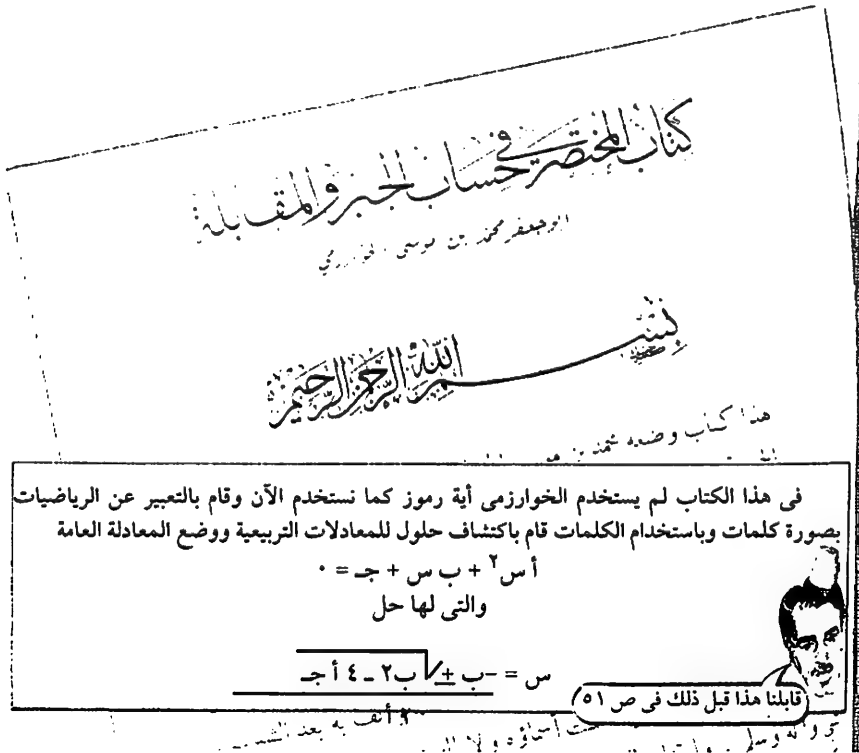 كتاب المختصر في حساب الجبر والمقابلة
ابو جعفر محمد بن موسى الخوارزمي
بسم الله الرحمن الرحيم
هذا كتاب وضعه محمد بن
فى هذا الكتاب لم يستخدم الخوارزمى أية رموز كما نستخدم الآن وقام بالتعبير عن الرياضيات
بصورة كلمات وباستخدام الكلمات قام باكتشاف حلول للمعادلات التربيعية ووضع المعادلة العامة
أ س٢ + ب س + جـ = ٠
والتى لها حل
س = -ب ± √ب٢ - ٤ أ جـ
٢ أ
قابلنا هذا قبل ذلك فى ص ٥١
به بعد